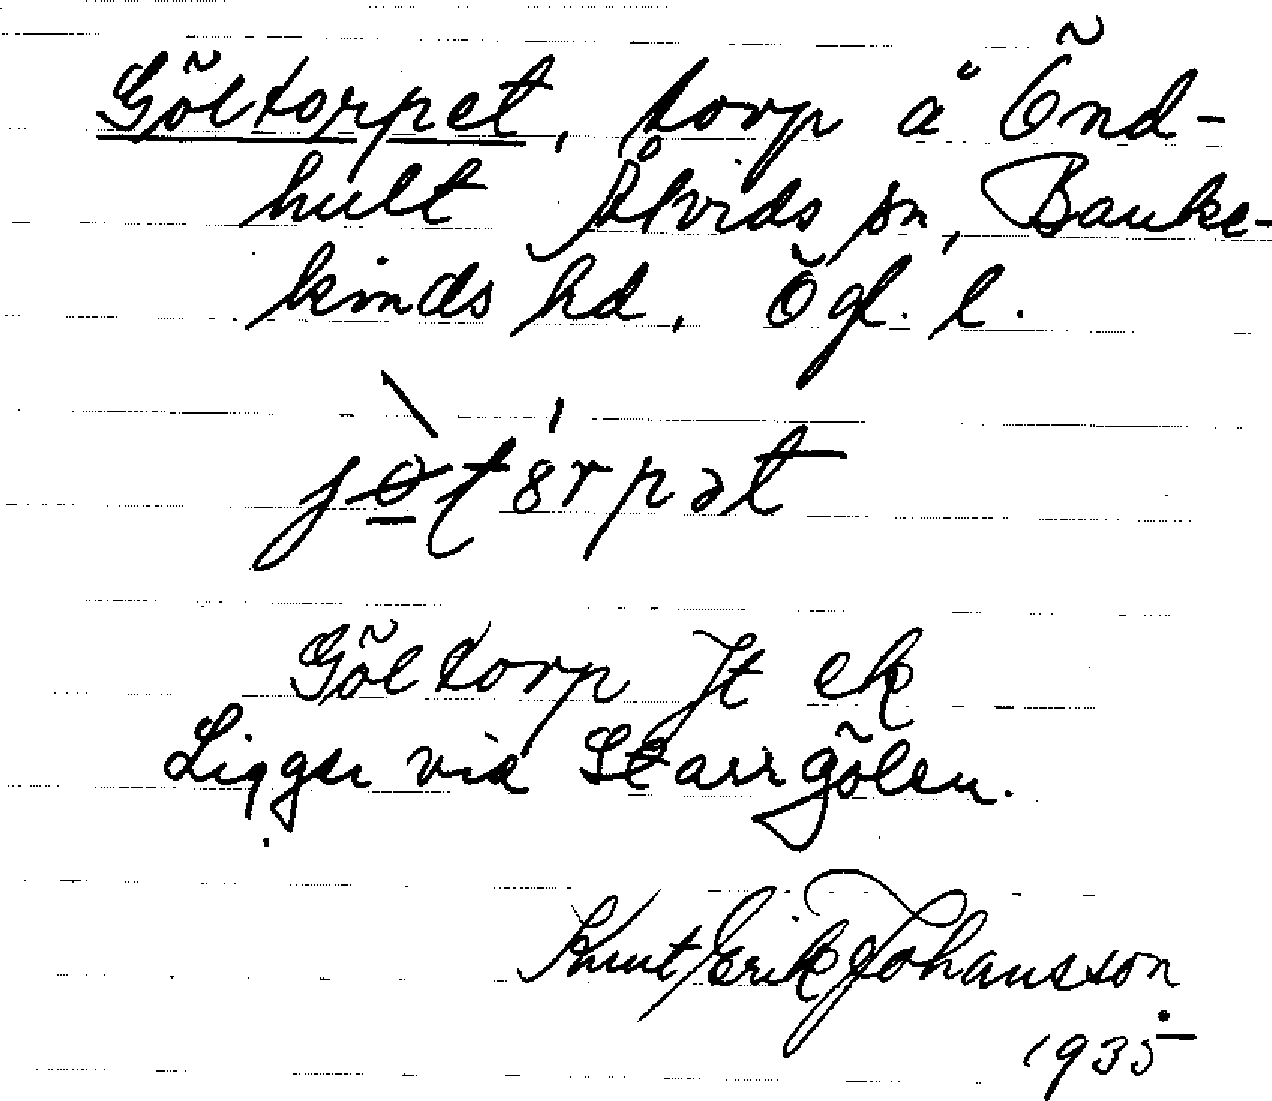 Göltorpet, torp å Önd-
hult Åtvids sn, Banke-
kinds hd. Ögl. l.
Göltorp Jt ek
Ligger vid Starrgölen.
Knut Erik Johansson
1935